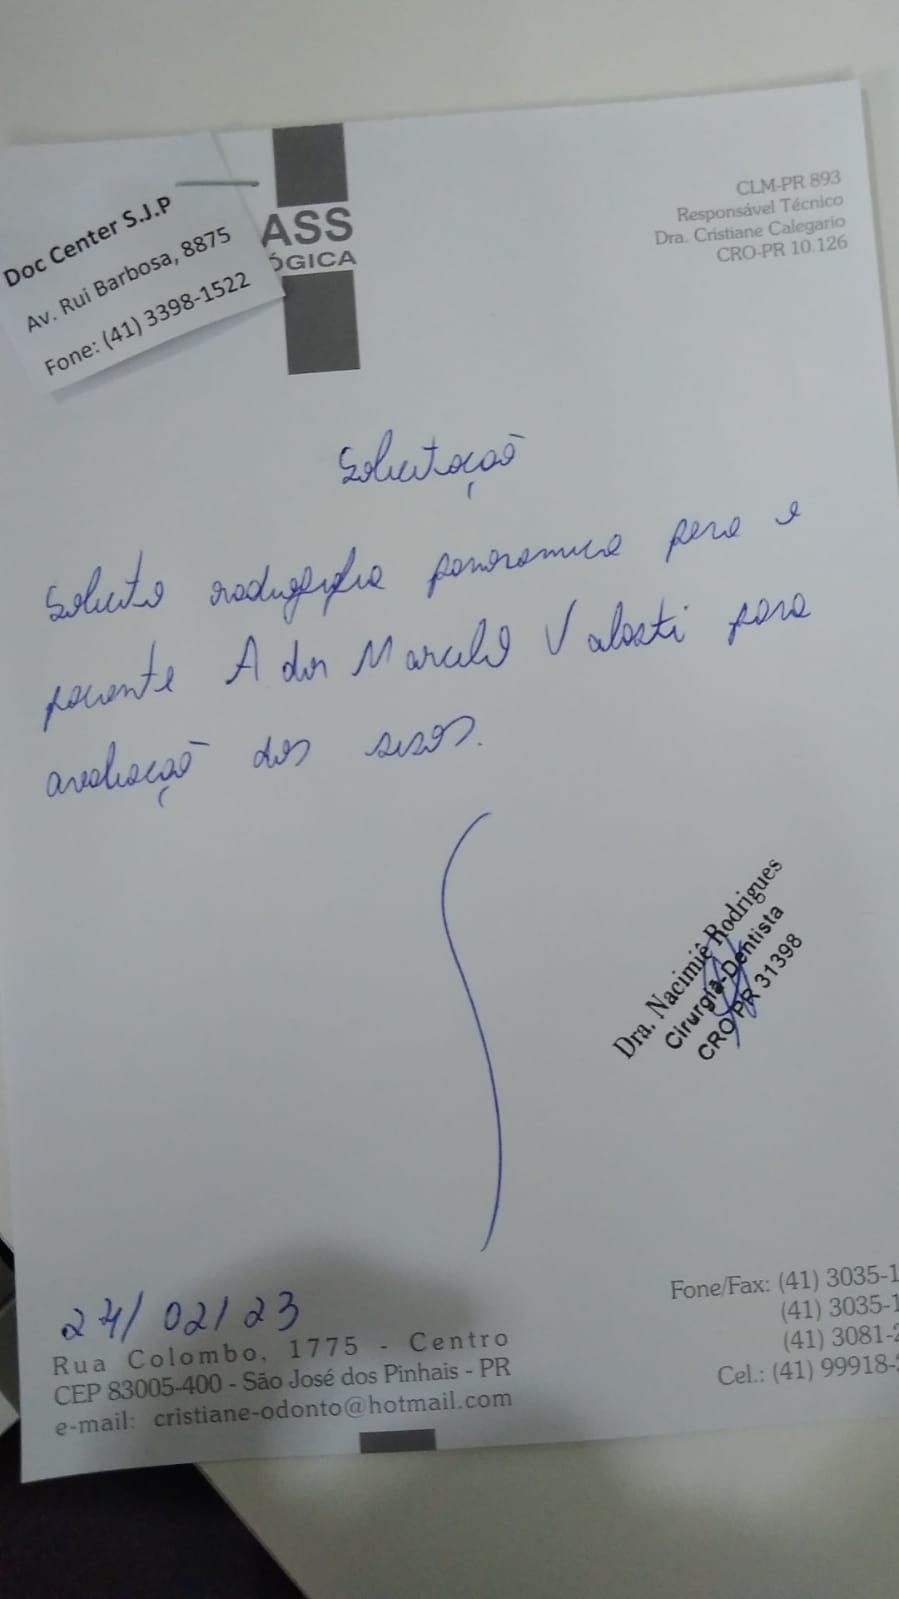 Doc Center S.J.P
Av. Rui Barbosa, 8875
Fone: (41) 3398-1522
ASS
ÓGICA
CLM-PR 893
Responsável Técnico
Dra. Cristiane Calegario
CRO-PR 10.126
Solicitação
Solicito radiografia panoramica para o
paciente Marcelo para
avaliação dos sisos.
Dra. Nacimiê Rodrigues
Cirurgiã-Dentista
CRO PR 31398
24/02/23
Rua Colombo, 1775 - Centro
CEP 83005-400 - São José dos Pinhais - PR
e-mail: cristiane-odonto@hotmail.com
Fone/Fax: (41) 3035-1
(41) 3035-1
(41) 3081-2
Cel.: (41) 99918-